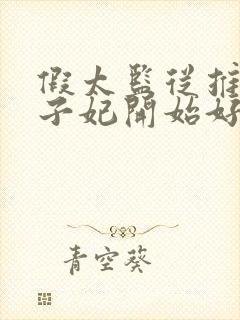 假太監從推
子妃開始好
青空葵